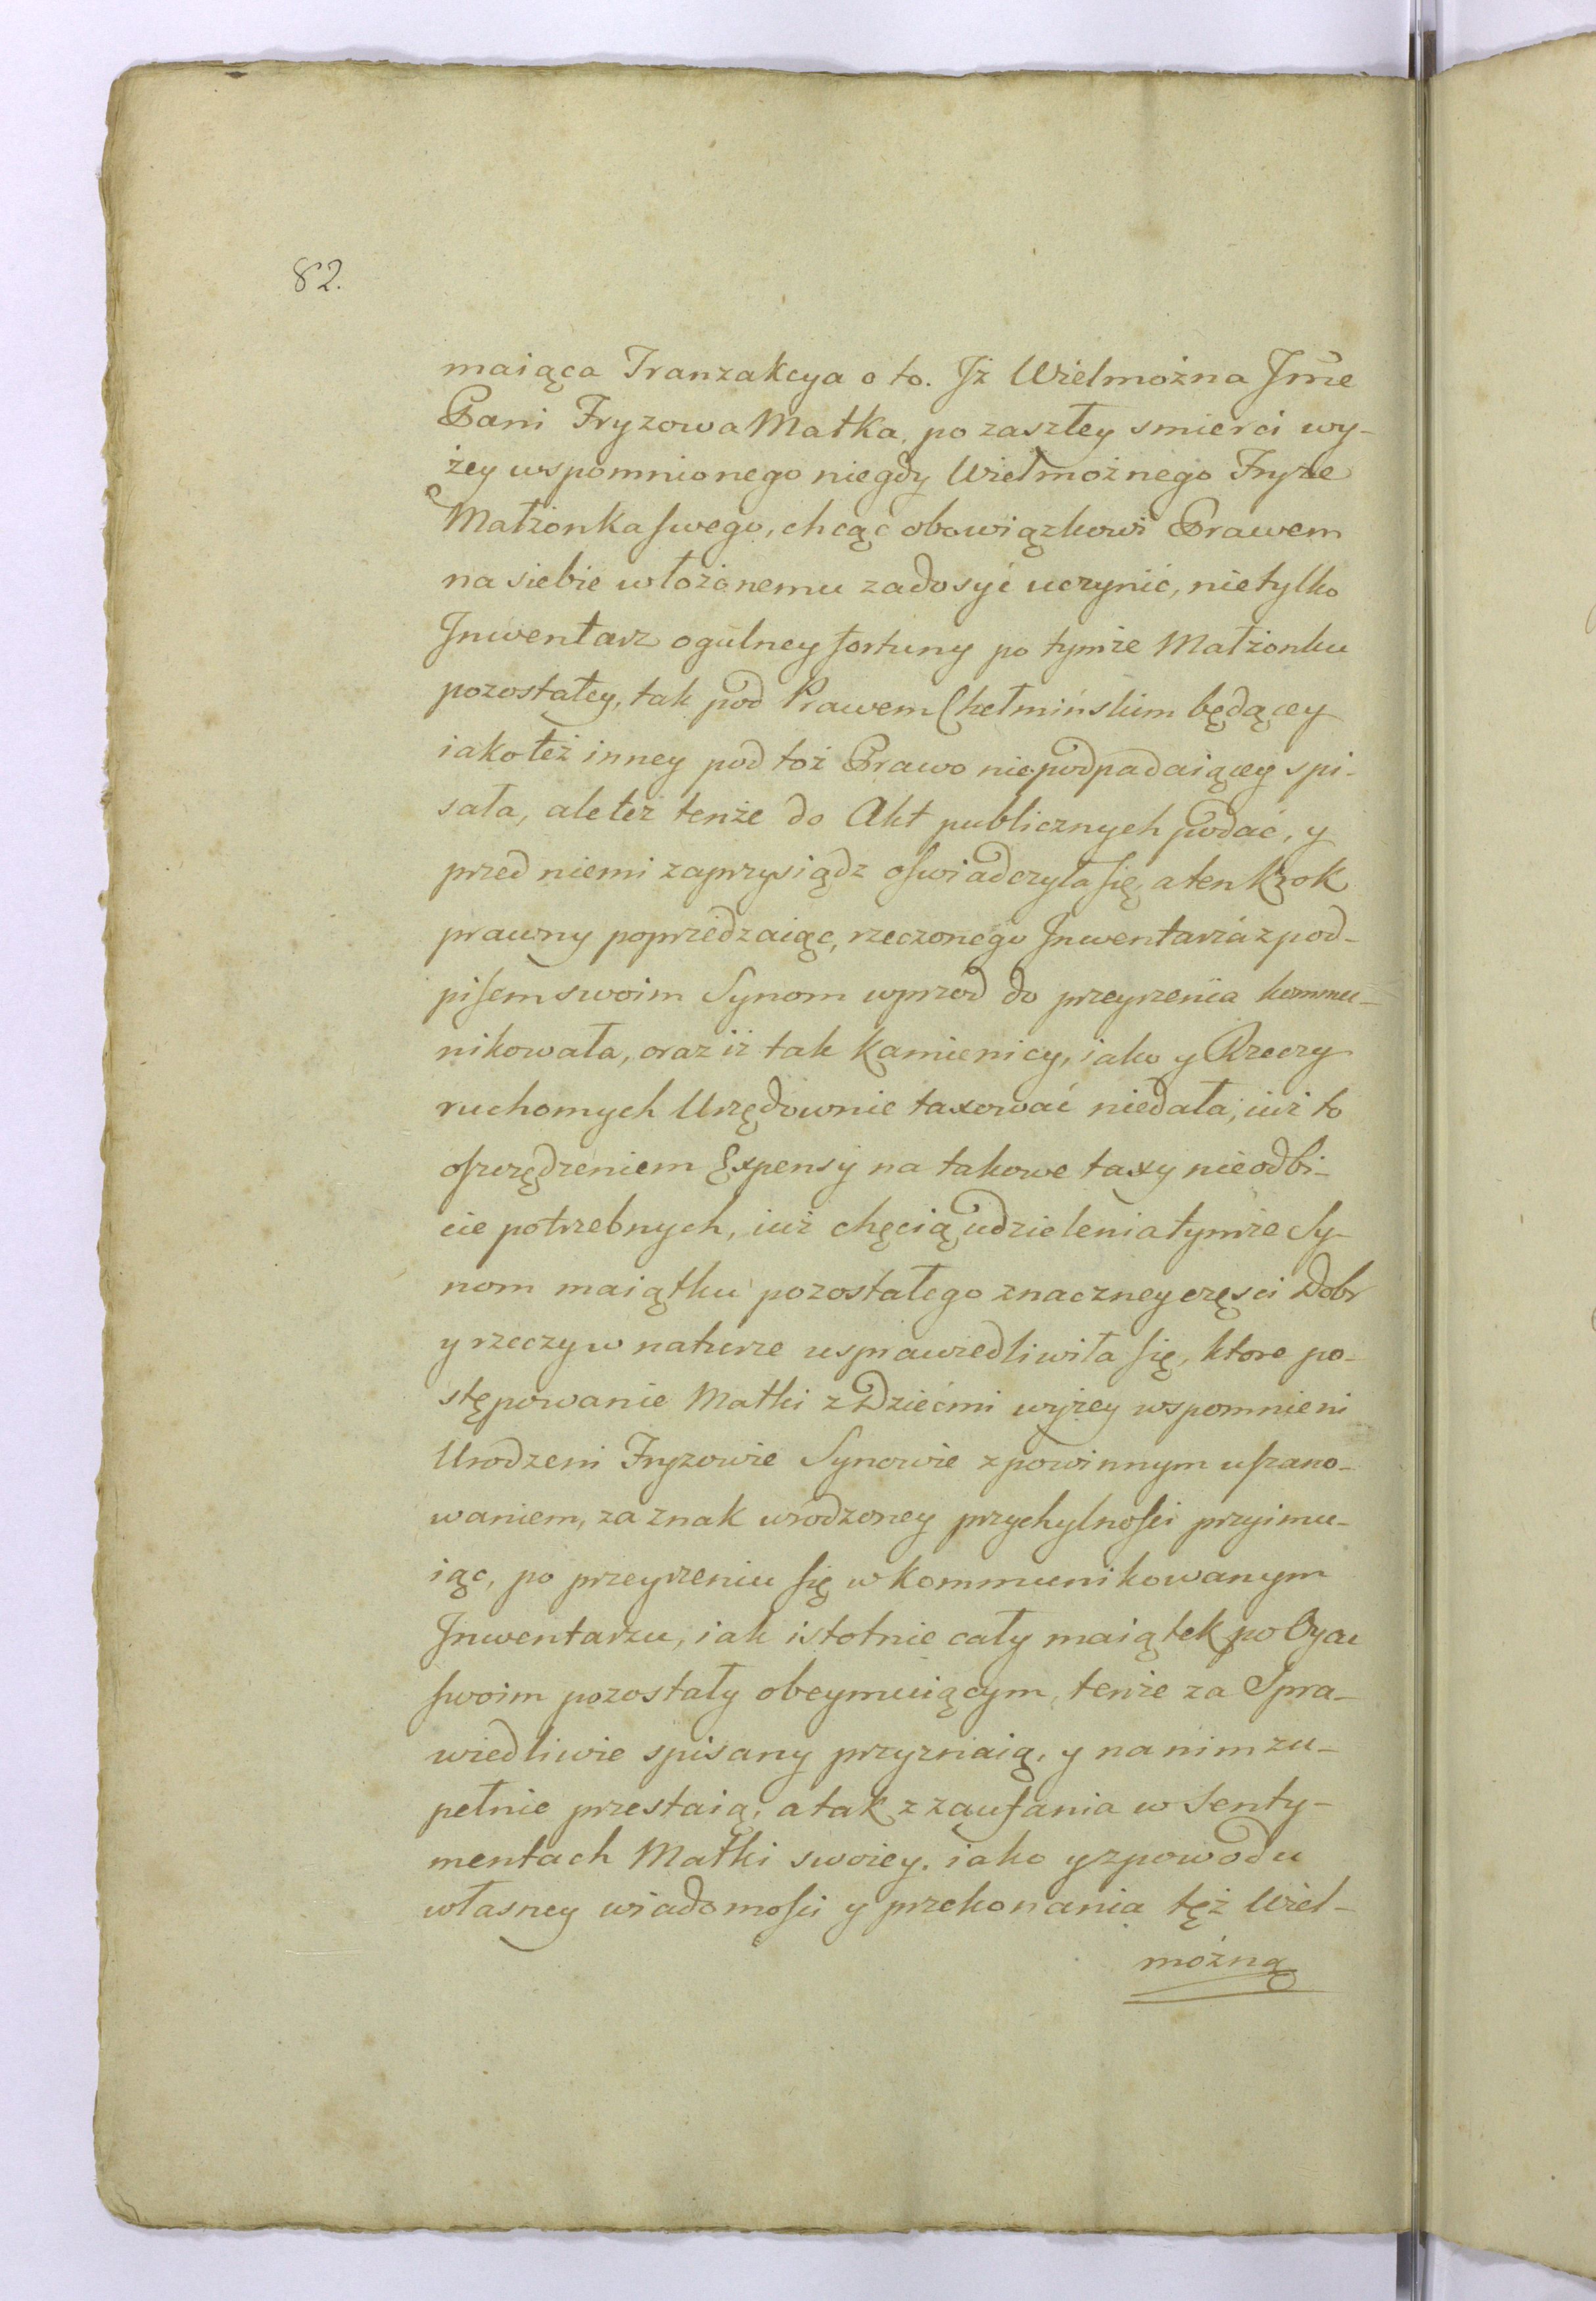 82.
maiąca Tranzakcya o to. Jż Wielmożna Jmć
Pani Fryzowa Matka, po zaszłey smierci wy-
żey wspomnionego niegdy Wielmożnego Fryze
Małżonka swego, chcąc obowiązkowi Prawem
na siebie włożonemu zadosyć uczynić, nietylko
Jnwentarz ogulney fortuny po tymże Małżonku
pozostałey, tak pod Prawem Chełmińskim będącey
iakoteż inney pod toż Prawo niepodpadaiącey spi-
sała, aletez tenże do Akt publicznych podać, y
przed niemi zaprzysiądz oswiadczyła się, a ten krok
prawny poprzedzaiąc, rzeczonego Jnwentarza z pod-
pisem swoim Synom wprzod do przeyrzenia kommu-
nikowała, oraz iż tak Kamienicy, iako y Rzeczy
ruchomych Urzędownie taxować niedała, iuż to
oszczędzeniem Expensy na takowe taxy nieodbi-
cie potrzebnych, iuż chęcią udzielenia tymże Sy-
nom maiątku pozostałego znaczney częsci Dobr
y rzeczy w naturze usprawiedliwiła się, ktore po-
stępowanie Matki z Dziećmi wyżey wspomnieni
Urodzeni Fryzowie Synowie z powinnym uszano-
waniem, za znak wrodzoney przychylnosci przyimu-
iąc, po przeyrzeniu się w kommunikowanym
Jnwentarzu, iak istotnie cały maiątek po Oycu
swoim pozostały obeymuiącym, tenże za Spra-
wiedliwie spisany przyznaią, y na nim zu-
pełnie przestaią, a tak z zaufania w Senty-
mentach Matki swoiey, iako y z powodu
własney wiadomosci y przekonania tęż Wiel-
możną